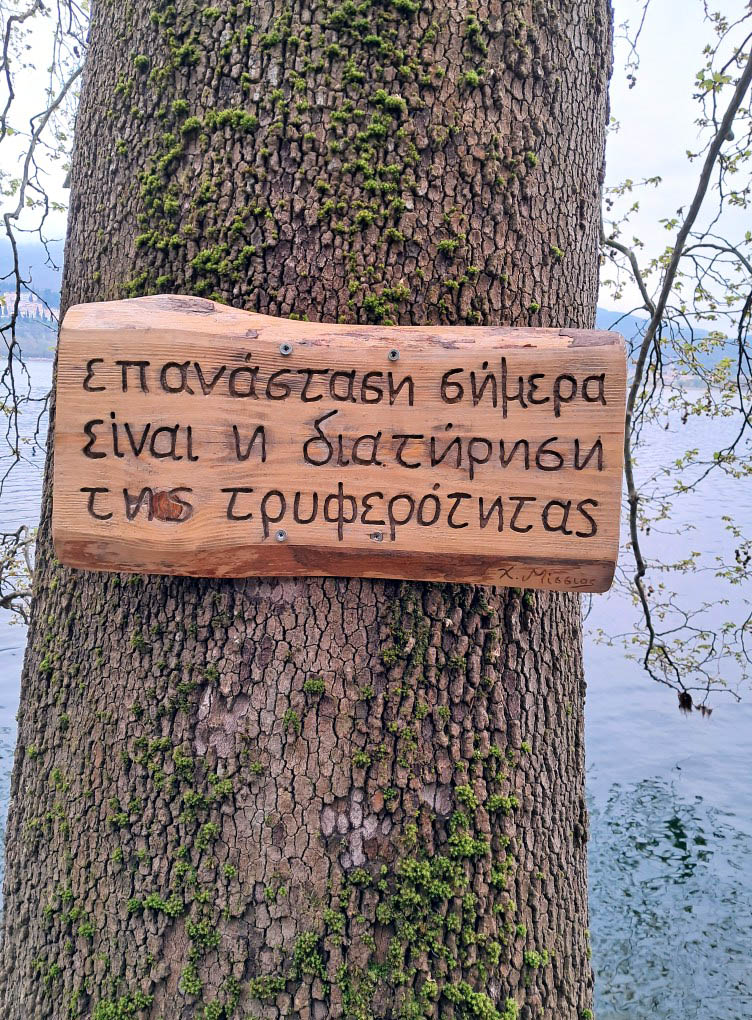 επανάσταση σήμερα
είναι η διατήρηση
της τρυφερότητας
Χ. Μίσσιος